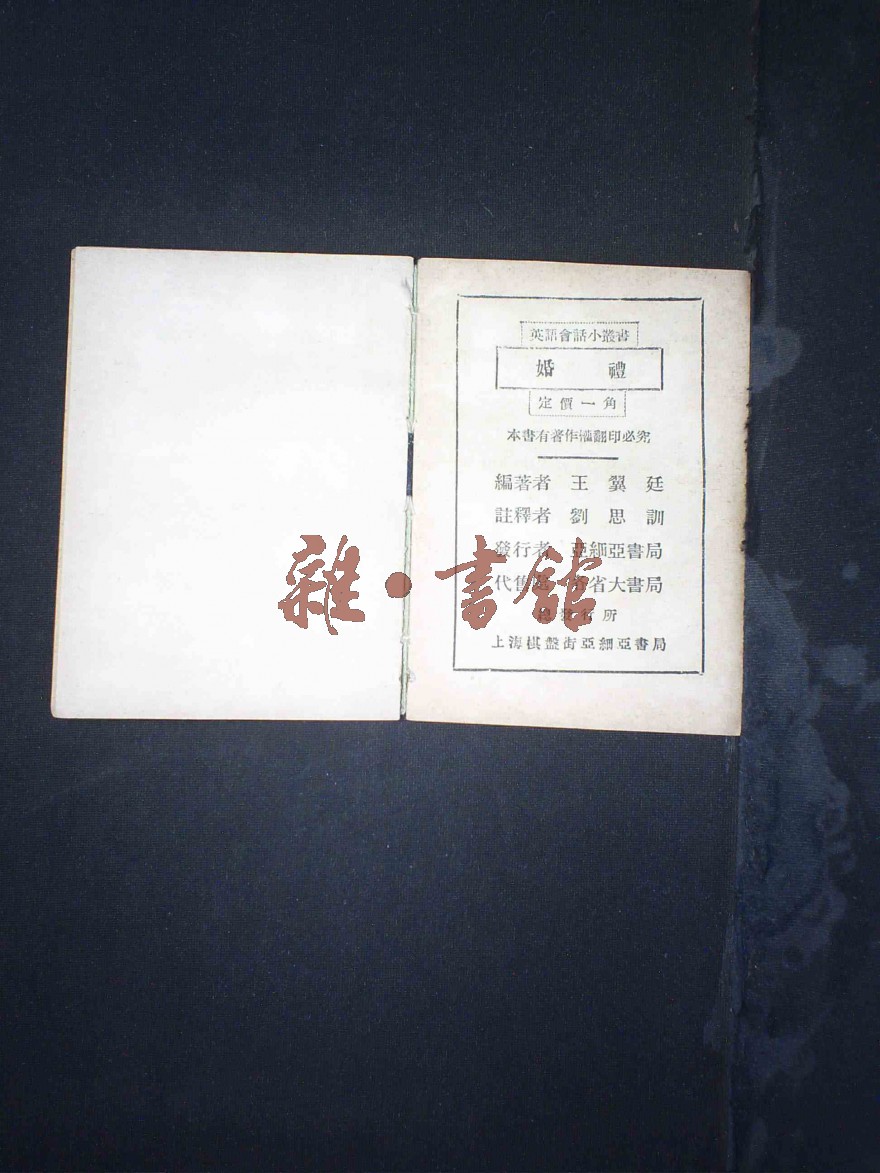 英語會話小叢書
婚禮
定價一角
本書有著作權翻印必究
編著者 王翼廷
註釋者 劉思訓
發行者 亞細亞書局
代售處 各省大書局
總發行所
上海棋盤街亞細亞書局
雜·書館